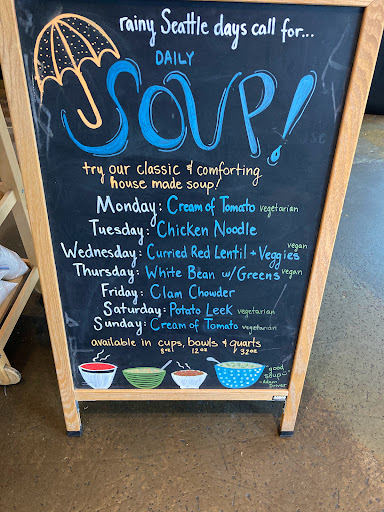 rainy Seattle days call for...
DAILY
SOUP!
try our classic & comforting
house made soup!
Monday: Cream of Tomato vegetarian
Tuesday: Chicken Noodle
Wednesday: Curried Red Lentil + Veggies vegan
Thursday: White Bean w/Greens vegan
Friday: Clam Chowder
Saturday: Potato Leek vegetarian
Sunday: Cream of Tomato vegetarian
available in cups, bowls & quarts
8oz 12oz 32oz
"good
soup"
-Adam
Driver